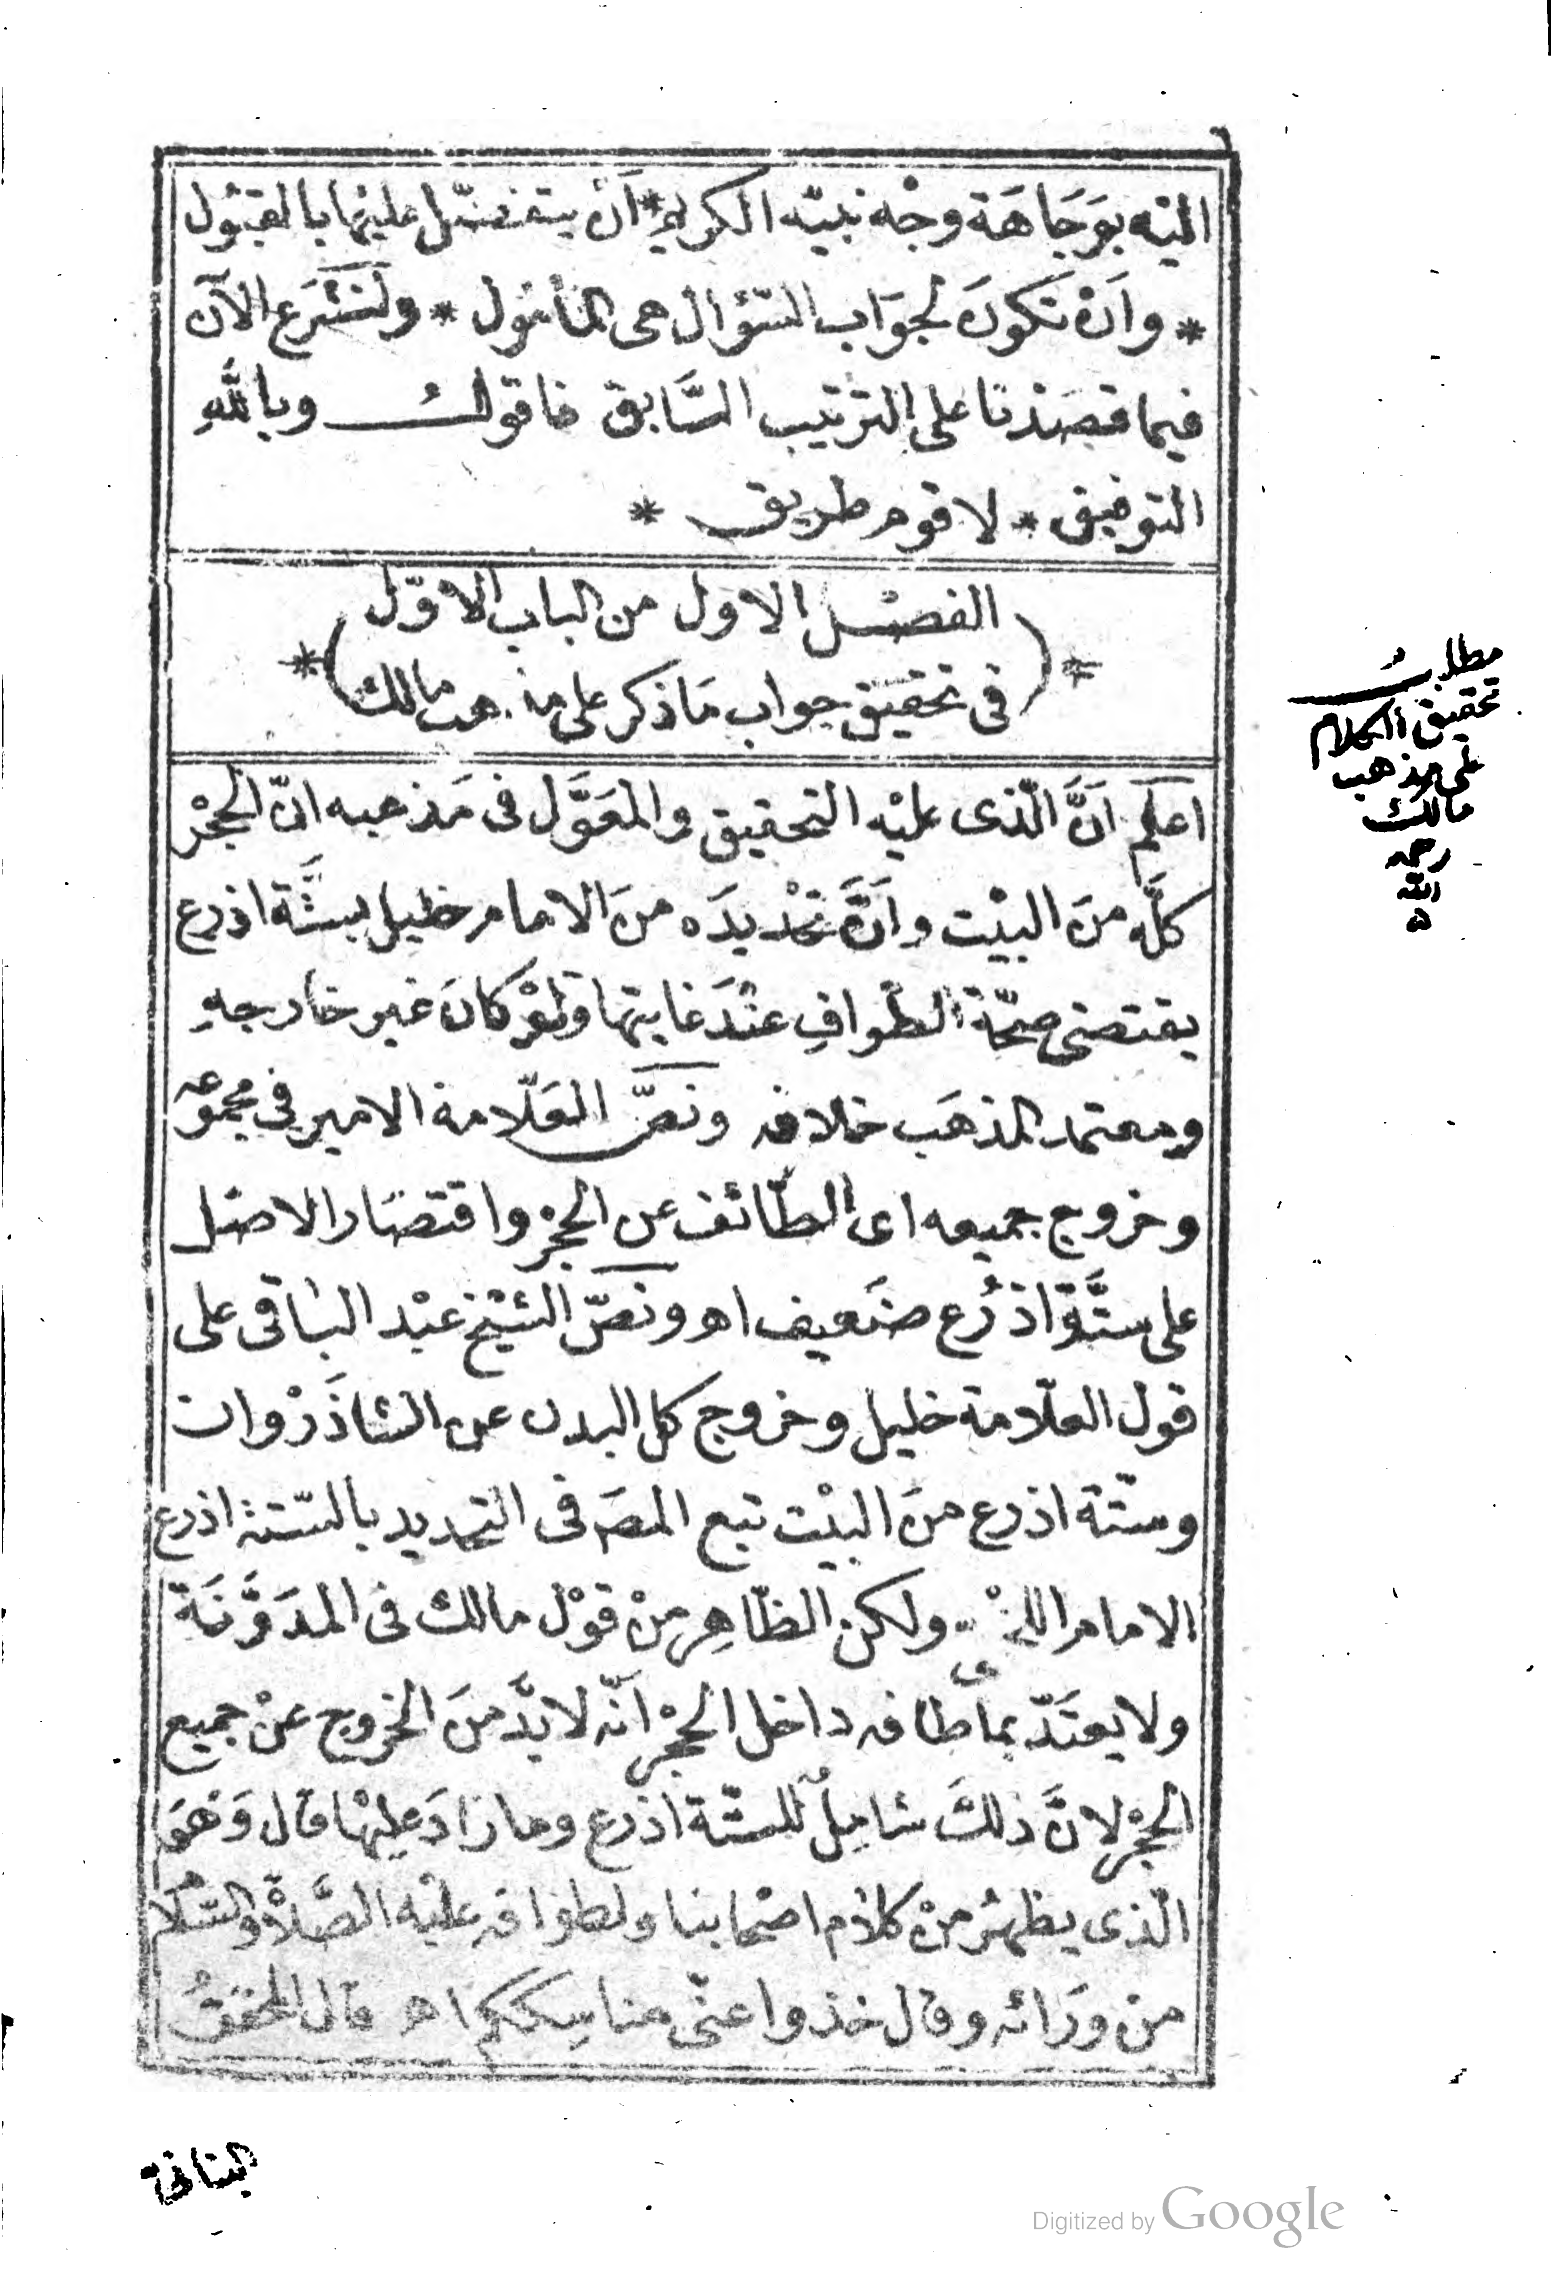 اليْه بوَجَاهَة وجْه نبيّه الكريم * اَنْ يتفضّل عليْها بالقبُول
* واَنْ تكونَ لجوَاب السّؤال هى المأمُول * ولنَشْرَع الآن
فيما قصَدْنا على الترتيب السَّابق فاقولُ وباللَّهِ
التوفيق * لاقوم طريق *
الفصْل الاول من الباب الاوّل
*(فى تحقيق جواب مَا ذكر على مذهب مالك)*
اعلَم اَنَّ الّذى عليْه التحقيق والمعَوَّل فى مَذهبه انّ الحجْر
كلَّه منَ البيْت واَنَّ تحْديدَه منَ الامام خليل بستَّة اذرع
يقتضى صحّة الطّوافِ عنْدَ غايتها ولوْ كانَ غير خارجهِ
ومعتمد المذهَب خلافه ونَصّ العَلّامة الامير فى مجموعه
وخروج جميعه اى الطّائف عن الحجْر واقتصَار الاصْل
على ستَّة اذرُع ضَعيف اهـ ونَصّ الشيْخ عبْد البَاقى على
قول العلّامة خليل وخروج كل البدن عن الشاذَرْوان
وستّة اذرع منَ البيْت تبع المصَ فى التحديد بالستّة اذرع
الامام اللخْمى ولكن الظّاهِر منْ قوْل مالك فى المدَوَّنَة
ولا يعتَدّ بما طافه داخل الحجْر انّه لا بدَّ منَ الخروج عنْ جميع
الحجْر لانَّ ذلكَ شامِلٌ للستّة اذرع وما زادَ عليْها قال وَهوَ
الّذى يظهرُ منْ كلام اصْحابنا ولطوافه عليْه الصَّلاةُ والسَّلام
من ورَائه وقال خذوا عنّى مناسِككم اهـ قال المحققُ
مطلبُ
تحقيق الكلام
على مذهب
مالك
رحمه
الله
البنانى
Digitized by Google